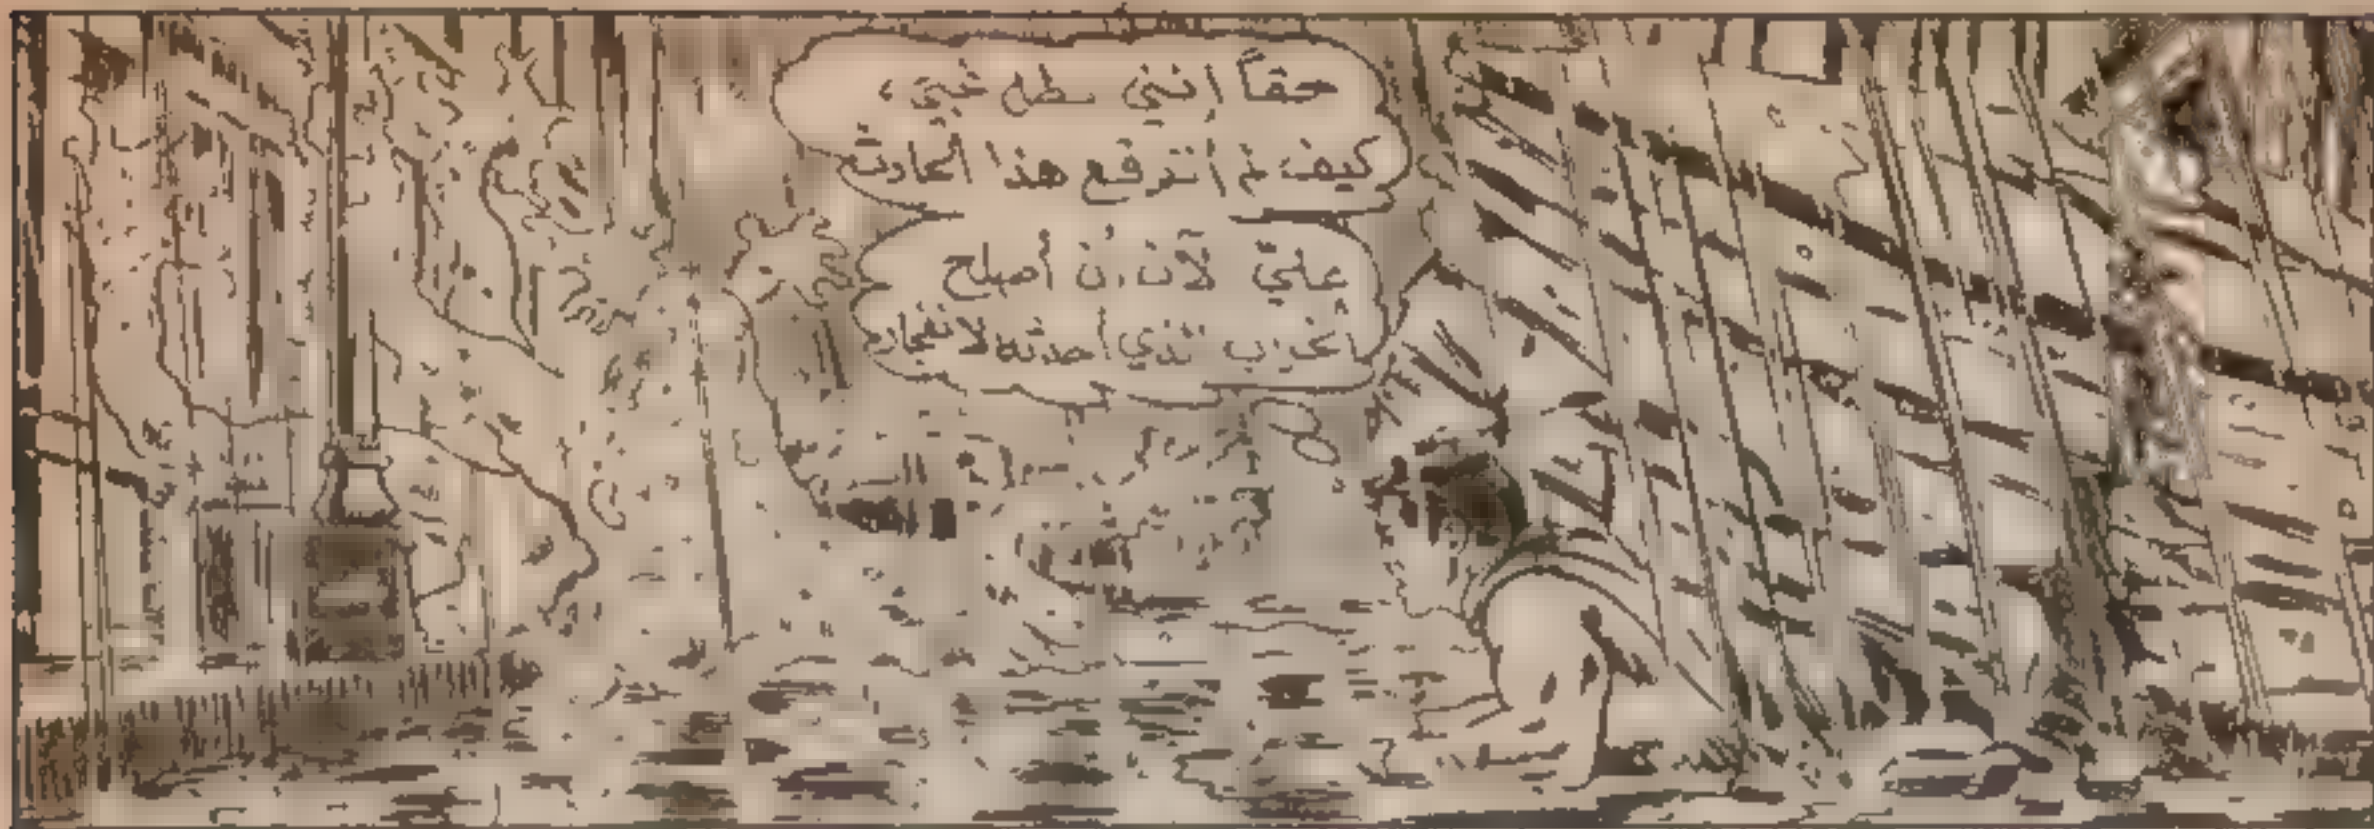 حقاً إنني طفل غبيّ،
كيف لم أتوقع هذا الحادث
عليّ الآن أن أصلح
الخراب الذي أحدثه الانفجار